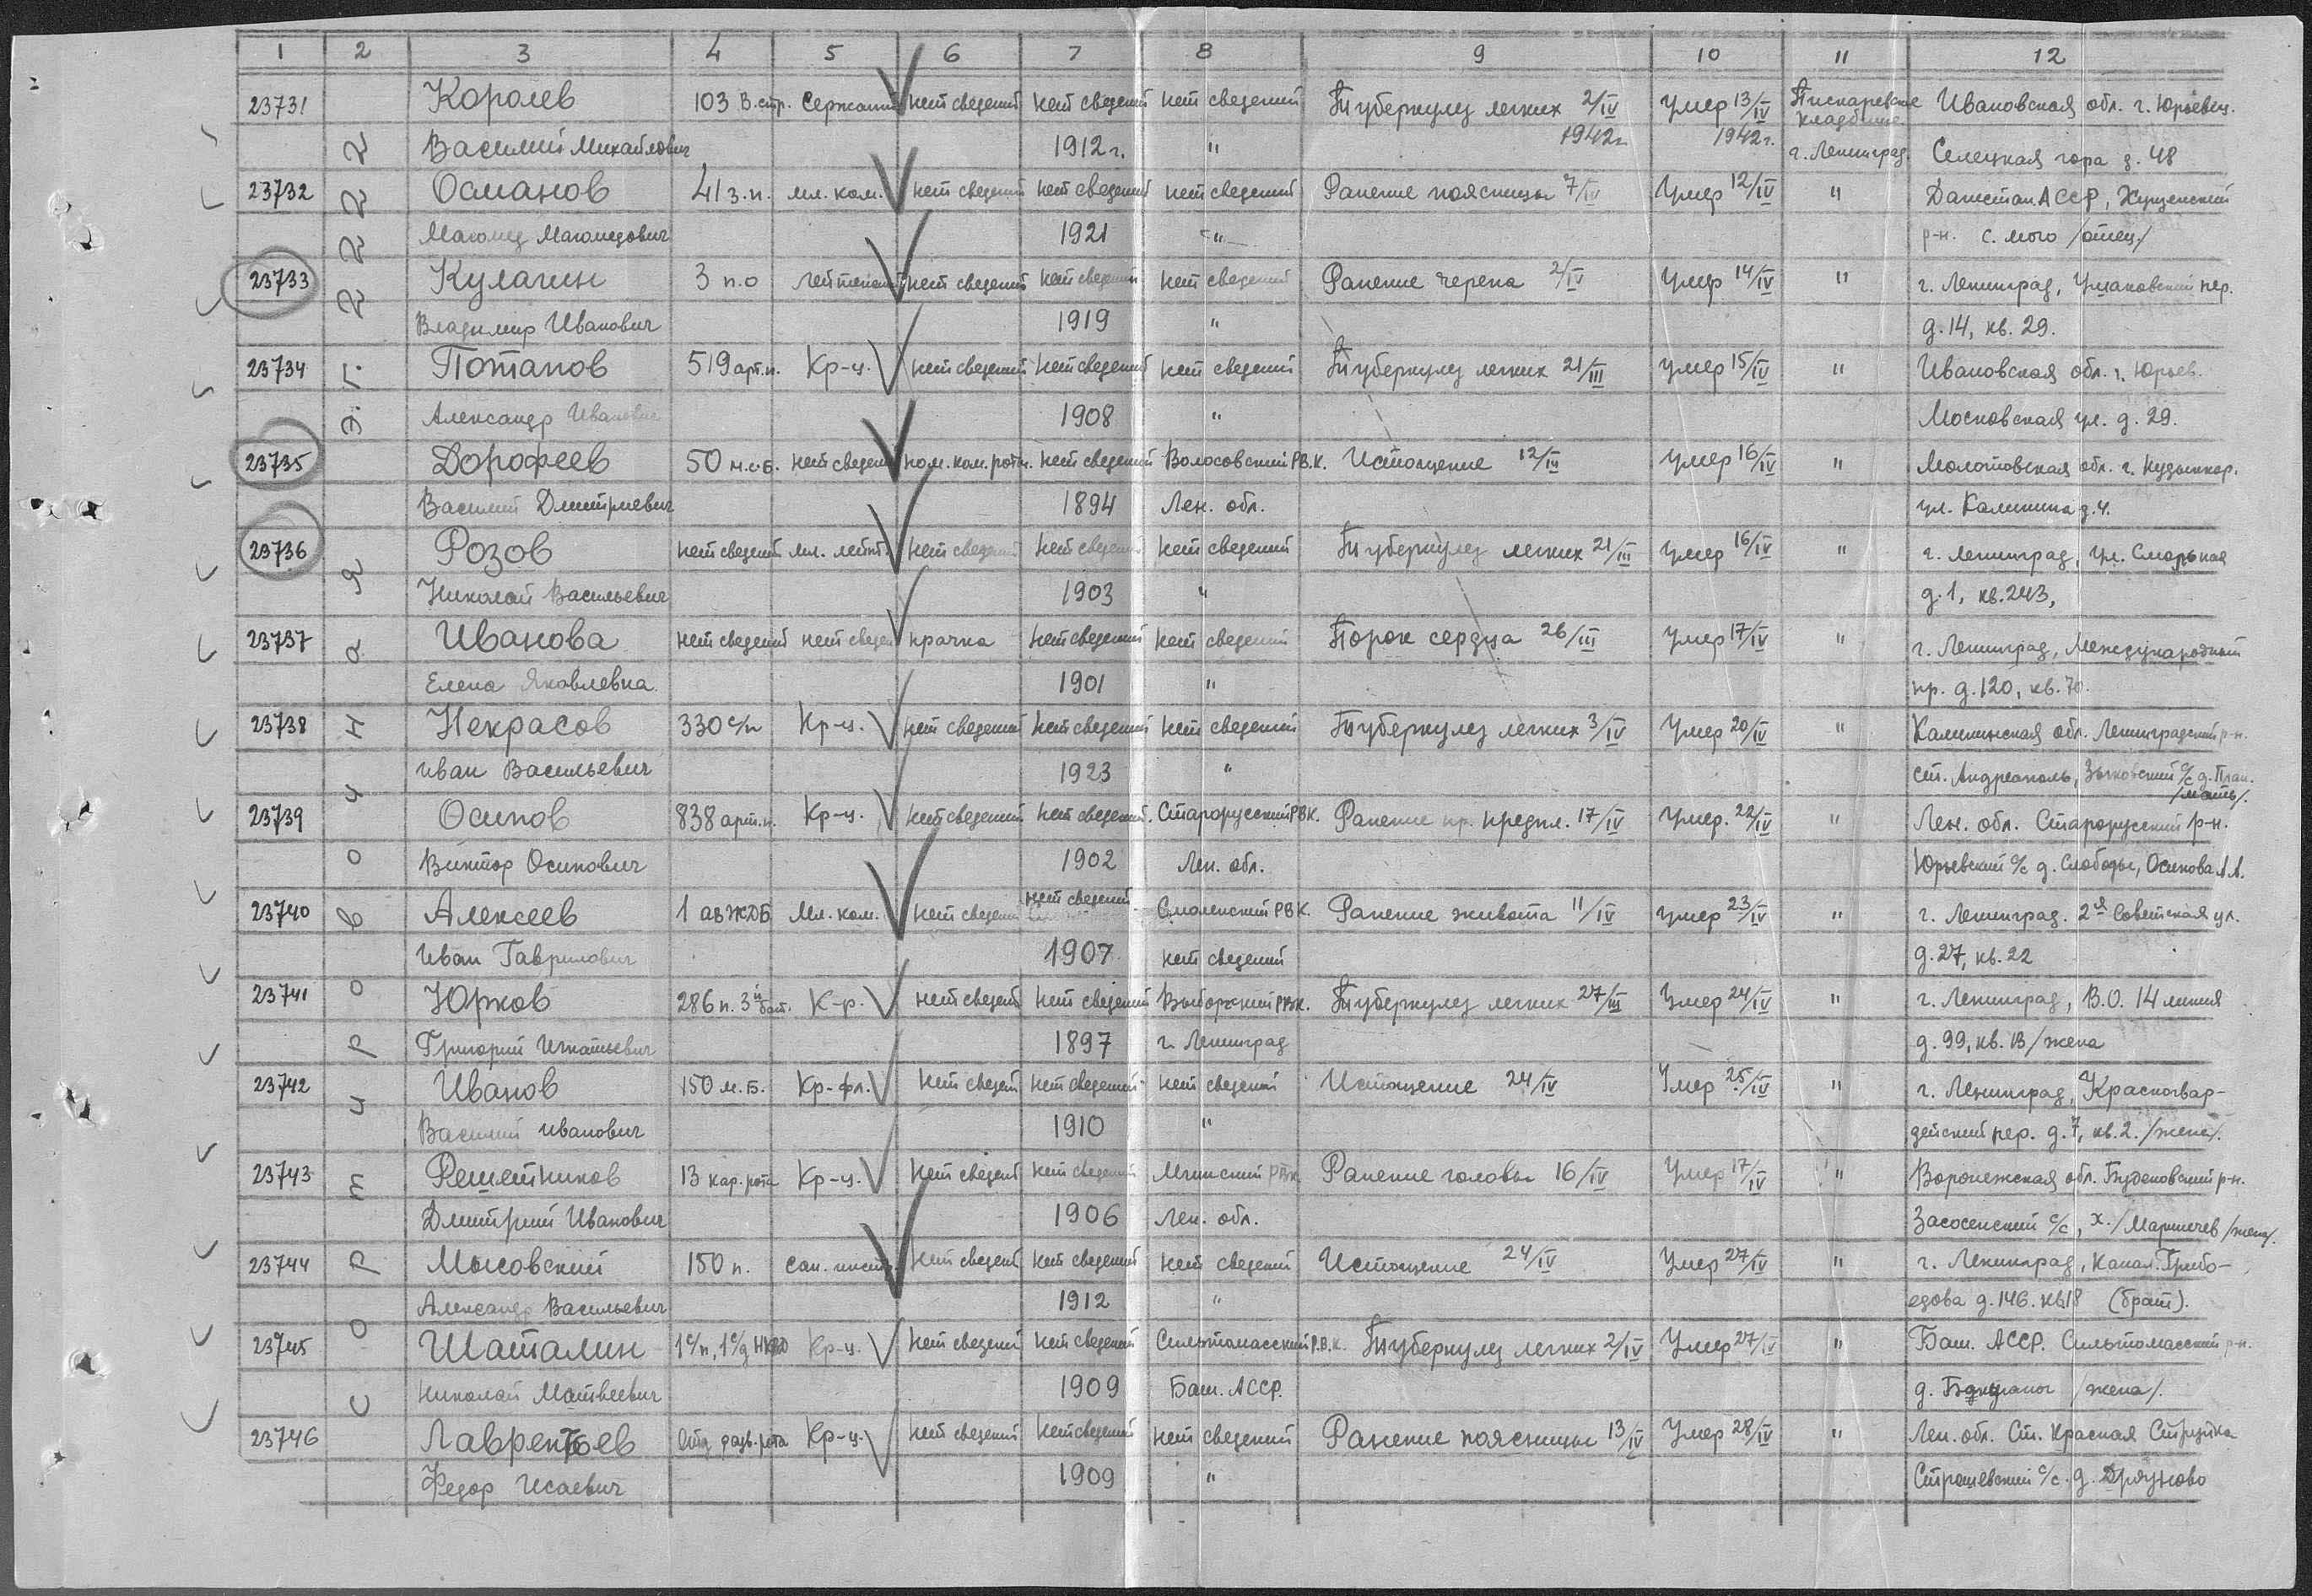 1 2 3 4 5 6 7 8 9 10 11 12
23731 Королев 103 В.стр. Сержант нет сведений нет сведений нет сведений Туберкулез легких 2/IV Умер 13/IV Пискаревское Ивановская обл. г. Юрьевец.
кладбище
Василий Михайлович 1912 г. " 1942г 1942г. г. Ленинград. Селецкая гора д. 48
23732 Османов 41 з.п. мл. ком. нет сведений нет сведений нет сведений Ранение поясницы 7/IV Умер 12/IV " Дагестан АССР,
Магомед Магомедович 1921 " р-н. с. /отец/
23733 Кулагин 3 п.о лейтенант нет сведений нет сведений нет сведений Ранение черепа 2/IV Умер 14/IV " г. Ленинград, Ушаковский пер.
Владимир Иванович 1919 " д.14, кв. 29.
23734 Потапов 519 арт.п. Кр-ц. нет сведений нет сведений нет сведений Туберкулез легких 21/III умер 15/IV " Ивановская обл. г. Юрьев.
Александр Иванович 1908 " Московская ул. д. 29.
23735 Дорофеев 50 м.с.б. нет сведен пом. ком. роты. нет сведений Волосовский Р.В.К. Истощение 12/III умер 16/IV " Молотовская обл. г. Кудымкор.
Василий Дмитриевич 1894 Лен. обл. ул. Калинина д. 4.
23736 Розов нет сведений мл. лейт. нет сведений нет сведений нет сведений Туберкулез легких 21/III Умер 16/IV " г. Ленинград, ул.
Николай Васильевич 1903 " д.1, кв.243,
23737 Иванова нет сведений нет сведен прачка нет сведений нет сведений Порок сердца 26/III умер 17/IV " г. Ленинград, Международный
Елена Яковлевна. 1901 " пр. д.120, кв. 70.
23738 Некрасов 330 с/п Кр-ц. нет сведений нет сведений нет сведений Туберкулез легких 3/IV Умер 20/IV " Калининская обл. Ленинградский р-н.
Иван Васильевич 1923 " ст. Андреаполь, с/с д.
/мать/.
23739 Осипов 838 арт.п. Кр-ц. нет сведений нет сведений. Старорусский РВК. Ранение пр. предпл. 17/IV Умер. 22/IV " Лен. обл. Старорусский р-н.
Виктор Осипович 1902 Лен. обл. Юрьевский с/с д. Слободы, Осипова А.Л.
23740 Алексеев 1 ав ЖДБ Мл. ком. нет сведен нет сведений Смоленский РВК. Ранение живота 11/IV умер 23/IV " г. Ленинград. 2я Советская ул.
Иван Гаврилович 1907 нет сведений д. 27, кв. 22
23741 Юрков 286 п. 3й бат. К-р. нет сведен нет сведений Выборгский РВК. Туберкулез легких 27/III Умер 24/IV " г. Ленинград, В.О. 14 линия
Григорий Игнатьевич 1897 г. Ленинград д. 99, кв. 13 /жена
23742 Иванов 150 м.б. Кр-фл. нет сведен нет сведений нет сведений Истощение 24/IV Умер 25/IV " г. Ленинград, Красногвар-
Василий Иванович 1910 " дейский пер. д. 7, кв. 2. /жена/.
23743 Решетников 13 кар. рота Кр-ц. нет сведен нет сведений Мгинский РВК Ранение головы 16/IV Умер 17/IV " Воронежская обл. Буденовский р-н.
Дмитрий Иванович 1906 Лен. обл. Засосенский с/с, х./ /жена/.
23744 Мысовский 150 п. сан. инстр. нет сведен нет сведений нет сведений Истощение 24/IV Умер 27/IV " г. Ленинград, Канал. Грибо-
Александр Васильевич 1912 " едова д. 146. кв.18 (брат).
23745 Шаталин 1 с/п, 1 с/д НКВД Кр-ц. нет сведений нет сведений Р.В.К. Туберкулез легких 2/IV Умер 27/IV " Баш. АССР. р-н.
Николай Матвеевич 1909 Баш. АССР. д. /жена/.
23746 Лаврентьев Отд разв. рота Кр-ц. нет сведений нет сведений нет сведений Ранение поясницы 13/IV Умер 28/IV " Лен. обл. Ст. Красная Стружка
Федор Исаевич 1909 " с/с. д.
Сортировочная Э.Г. 2222